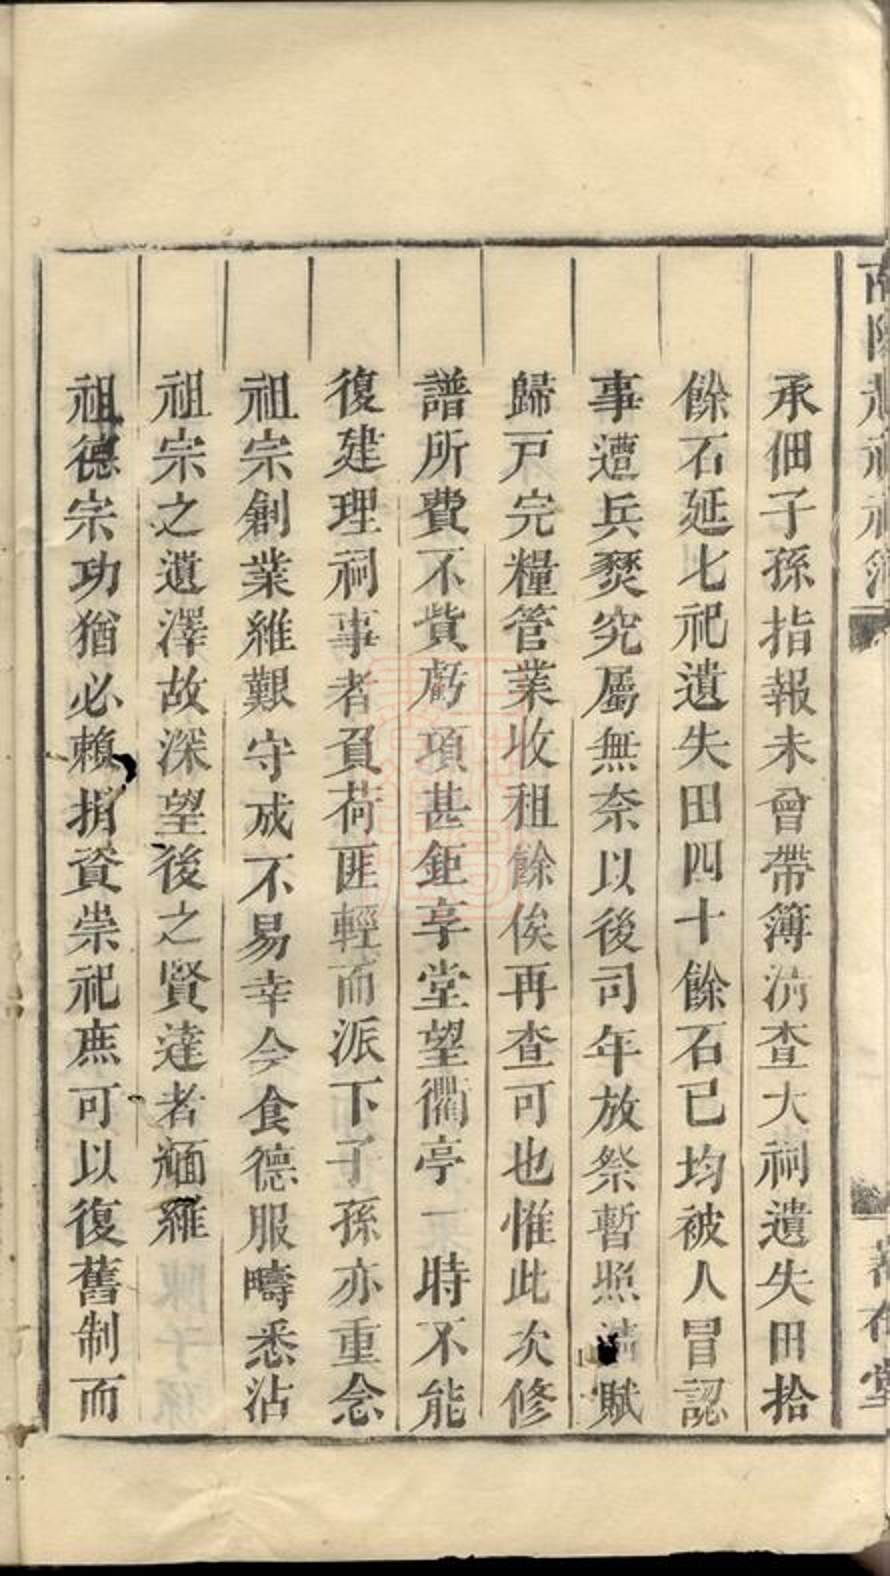 承佃子孫指報未曾帶簿清查大祠遺失田拾
餘石延七祀遺失田四十餘石已均被人冒認
事遭兵燹究屬無奈以後司年放祭暫照清賦
歸戸完糧管業收租餘俟再查可也惟此次修
譜所費不貲虧項甚鉅享堂望衢亭一時不能
復建理祠事者負荷匪輕而派下子孫亦重念
祖宗創業維艱守成不易幸今食德服疇悉沾
祖宗之遺澤故深望後之賢達者緬維
祖德宗功猶必賴捐資崇祀庶可以復舊制而